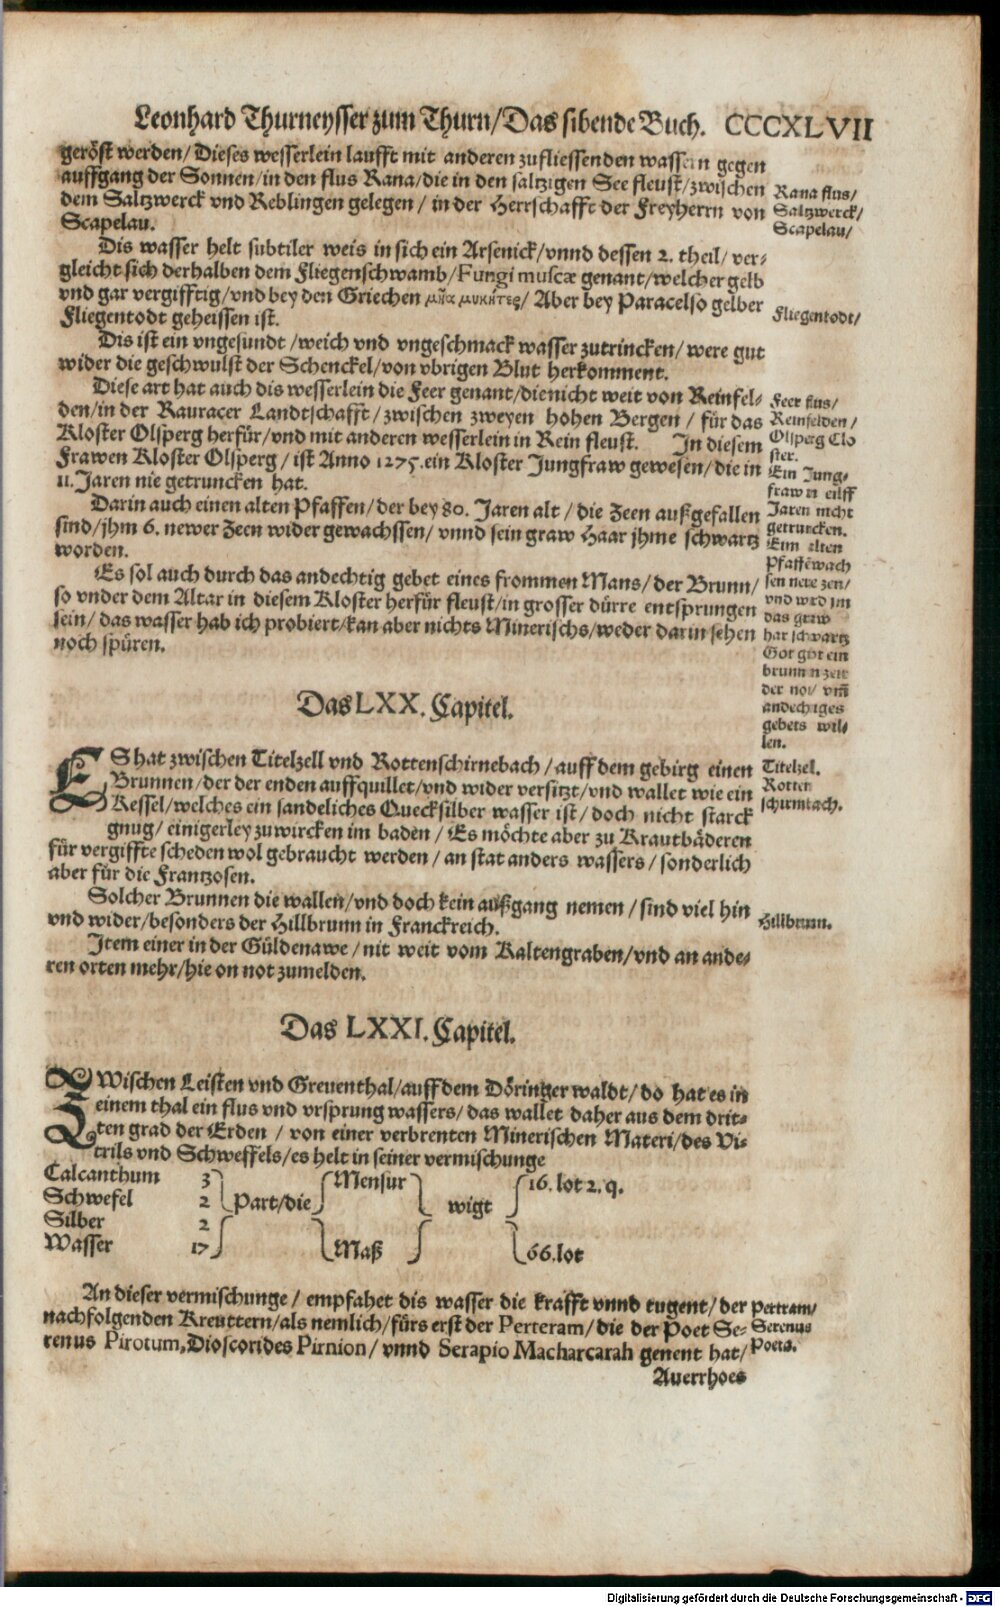 Leonhard Thurneysser zum Thurn/Das sibende Buch. CCCXLVII
geröst werden/Dieses wesserlein laufft mit anderen zufliessenden wassern gegen
auffgang der Sonnen/in den flus Rana/die in den saltzigen See fleust/zwischen
dem Saltzwerck vnd Reblingen gelegen/in der Herrschafft der Freyherrn von
Scapelau.
Rana flus/
Saltzwerck/
Scapelau/
Dis wasser helt subtiler weis in sich ein Arsenick/vnnd dessen 2. theil/ver-
gleicht sich derhalben dem Fliegenschwamb/Fungi muscæ genant/welcher gelb
vnd gar vergifftig/vnd bey den Griechen μῆα μυκῆτες/Aber bey Paracelso gelber
Fliegentodt geheissen ist.
Fliegentodt/
Dis ist ein vngesundt/weich vnd vngeschmack wasser zutrincken/were gut
wider die geschwulst der Schenckel/von vbrigen Blut herkomment.
Diese art hat auch dis wesserlein die Feer genant/die nicht weit von Reinfel-
den/in der Rauracer Landtschafft/zwischen zweyen hohen Bergen/für das
Kloster Olsperg herfür/vnd mit anderen wesserlein in Rein fleust. In diesem
Frawen Kloster Olsperg/ist Anno 1275.ein Kloster Jungfraw gewesen/die in
11. Jaren nie getruncken hat.
Darin auch einen alten Pfaffen/der bey 80. Jaren alt/die Zeen außgefallen
sind/jhm 6. newer Zeen wider gewachssen/vnnd sein graw Haar jhme schwartz
worden.
Es sol auch durch das andechtig gebet eines frommen Mans/der Brunn/
so vnder dem Altar in diesem Kloster herfür fleust/in grosser dürre entsprungen
sein/das wasser hab ich probiert/kan aber nichts Minerischs/weder darin sehen
noch spüren.
Feer flus/
Reinfelden/
Olsperg Clo
ster.
Ein Jung-
fraw in eilff
Jaren nicht
getruncken.
Eim alten
Pfaffē wach
sen newe zen/
vnd wird im
das graw
har schwartz
Got gibt ein
brunnen zeit
der not/ vm̄
andechtiges
gebets wil-
len.
Das LXX. Capitel.
ES hat zwischen Titelzell vnd Rottenschirnebach/auff dem gebirg einen
Brunnen/der der enden auffquillet/vnd wider versitzt/vnd wallet wie ein
Kessel/welches ein sandeliches Quecksilber wasser ist/doch nicht starck
gnug/einigerley zuwircken im baden/Es möchte aber zu Krautbäderen
für vergiffte scheden wol gebraucht werden/an stat anders wassers/sonderlich
aber für die Frantzosen.
Titelzel.
Rotten
schirnbach.
Solcher Brunnen die wallen/vnd doch kein außgang nemen/sind viel hin
vnd wider/besonders der Hillbrunn in Franckreich.
Hillbrunn.
Item einer in der Güldenawe/nit weit vom Kaltengraben/vnd an ande-
ren orten mehr/hie on not zumelden.
Das LXXI. Capitel.
ZWischen Leisten vnd Greventhal/auff dem Döringer waldt/do hat es in
einem thal ein flus vnd vrsprung wassers/das wallet daher aus dem drit-
ten grad der Erden/von einer verbrenten Minerischen Materi/des Vi-
trils vnd Schweffels/es helt in seiner vermischunge
Calcanthum 3 Mensur 16. lot 2. q.
Schwefel 2 Part/die wigt
Silber 2
Wasser 17 Maß 66. lot
An dieser vermischunge/empfahet dis wasser die krafft vnnd tugent/der
nachfolgenden Kreuttern/als nemlich/fürs erst der Perteram/die der Poet Se-
renus Pirotum, Dioscorides Pirnion/vnnd Serapio Macharcarah genent hat/
Pertram/
Serenus
Poeta.
Auerrhoes
Digitalisierung gefördert durch die Deutsche Forschungsgemeinschaft - DFG